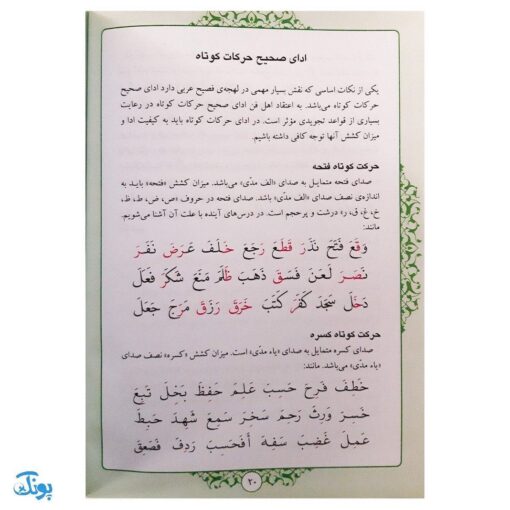 ادای صحیح حرکات کوتاه
یکی از نکات اساسی که نقش بسیار مهمی در لهجه‌ی فصیح عربی دارد ادای صحیح
حرکات کوتاه می‌باشد. به اعتقاد اهل فن ادای صحیح حرکات کوتاه در رعایت
بسیاری از قواعد تجویدی مؤثر است. در ادای حرکات کوتاه باید به کیفیت ادا و
میزان کشش آنها توجه کافی داشته باشیم.
حرکت کوتاه فتحه
صدای فتحه متمایل به صدای «الف مدّی» می‌باشد. میزان کشش «فتحه» باید به
اندازه‌ی نصف صدای «الف مدّی» باشد. صدای فتحه در حروف «ص، ض، ط، ظ،
خ، غ، ق، ر» درشت و پرحجم است. در درس‌های آینده با علت آن آشنا می‌شویم.
مانند:
وَقَعَ فَتَحَ نَذَرَ قَطَعَ رَجَعَ خَلَفَ عَرَضَ نَفَرَ
نَصَرَ لَعَنَ فَسَقَ ذَهَبَ ظَلَمَ مَنَعَ شَكَرَ فَعَلَ
دَخَلَ سَجَدَ كَفَرَ كَتَبَ خَرَقَ رَزَقَ مَرَجَ جَعَلَ
حرکت کوتاه کسره
صدای کسره متمایل به صدای «یاء مدّی» است. میزان کشش «کسره» نصف صدای
«یاء مدّی» می‌باشد. مانند:
خَطِفَ فَرِحَ حَسِبَ عَلِمَ حَفِظَ بَخِلَ تَبِعَ
خَسِرَ وَرِثَ رَحِمَ سَخِرَ سَمِعَ شَهِدَ حَبِطَ
عَمِلَ غَضِبَ سَفِهَ أَفَحَسِبَ رَدِفَ فَصَعِقَ
۲۰
پونک